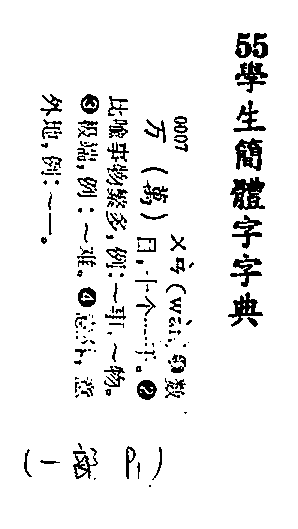 55學生簡體字字典
0007
万(萬) ㄨㄢˋ(wàn)❶数
目,十个…千。❷
比喻事物繁多,例:~事,~物。
❸极端,例:~难。❹意外,意
外地,例:~一。